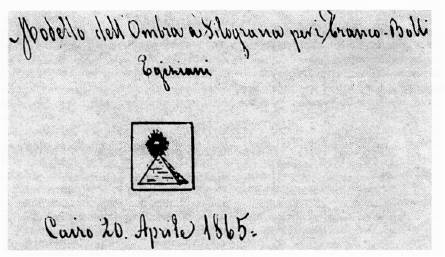 Modello dell'Ombra a Filograna per i Franco-Bolli
Egiziani
Cairo 20. Aprile 1865=